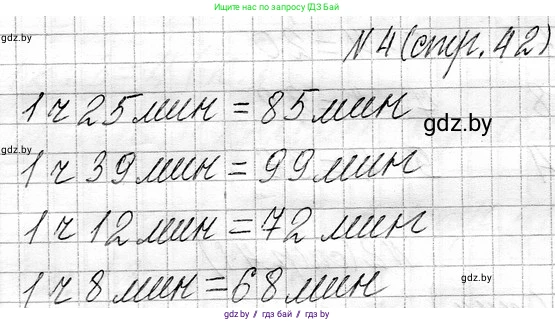 Ищите нас по запросу ГДЗ Бай
gdz.by
N 4 (стр. 42)
1 ч 25 мин = 85 мин
gdz.by
gdz.by
1 ч 39 мин = 99 мин
1 ч 12 мин = 72 мин
gdz.by
1 ч 8 мин = 68 мин
gdz.by / гдз бай / гдз by